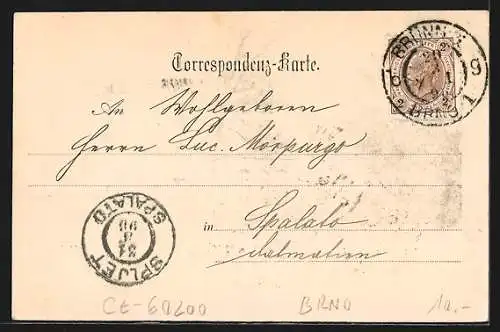 BRÜNN
BRNO 1
Correspondenz-Karte.
An Wohlgeboren
Herrn Luc. Morpurgo
in Spalato
Dalmatien
SPLJET
SPALATO
CE-60200
BRNO
10.-